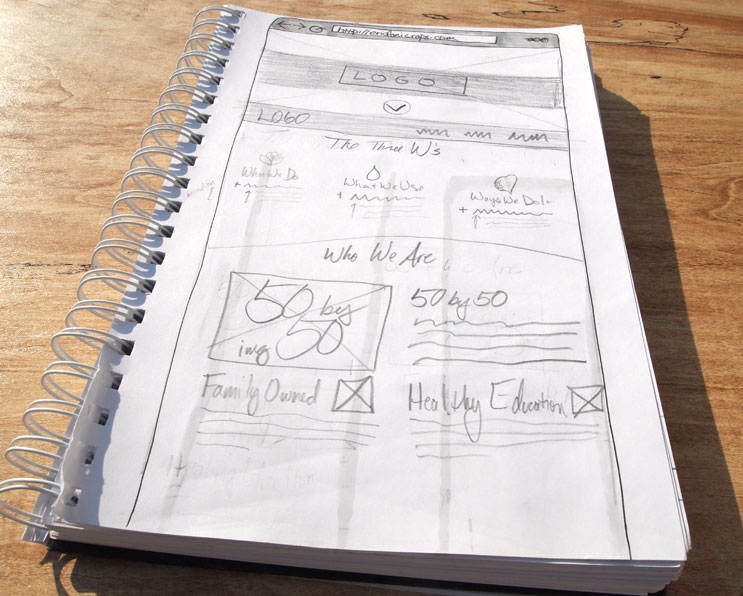 LOGO
LOGO
The Three W's
Who We Do
What We Use
Ways We Do It
Who We Are
50 by
img 50
50 by 50
Family Owned
Healthy Education